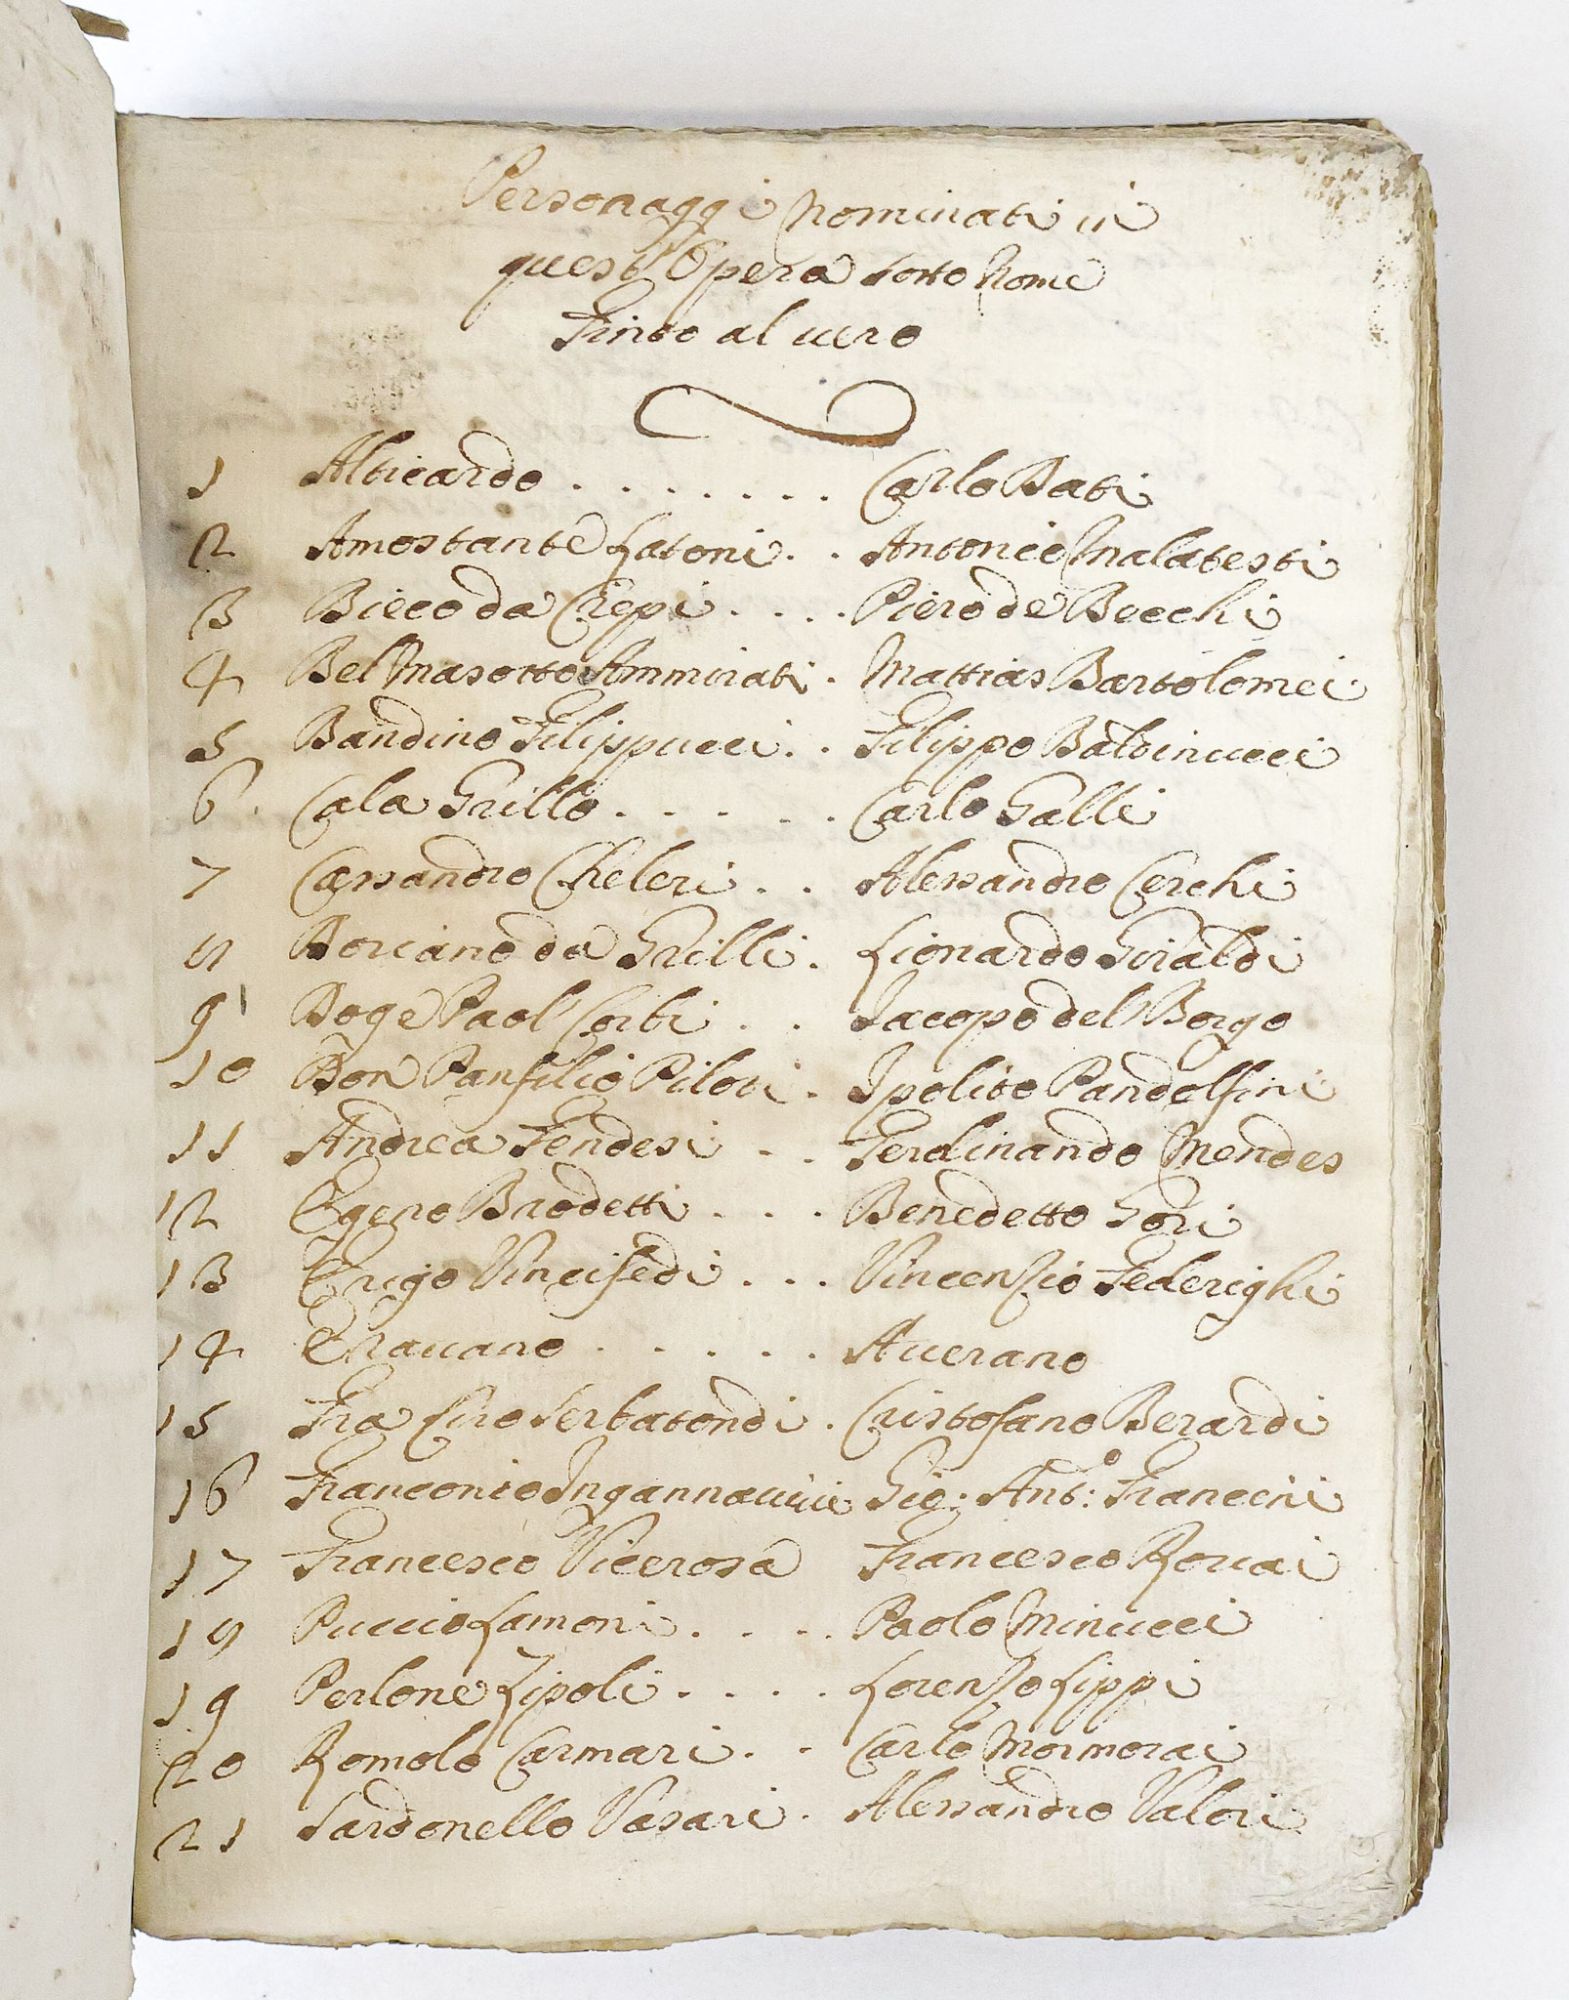 Personaggi Nominati in
quest'Opera sotto Nome
Finto al uero
1 Alticardo . . . . . . . Carlo Dati
2 Amostante Latoni . . Antonio Malatesti
3 Bieco da Crepi . . . . Piero de Becchi
4 Bel Masotto Ammirati . Mattias Bartolomei
5 Bandino Filippucci . . Filippo Baldinucci
6 Cala Grillo . . . . . Carlo Galli
7 Cassandro Cheleri . . Alessandro Cerchi
8 Doriano da Grilli . Lionardo Giraldi
9 Doge Paol Corbi . . Jacopo del Borgo
10 Don Panfilio Piloti . Ipolito Pandolfini
11 Andrea Fendesi . . Ferdinando Mendes
12 Egeno Brodetti . . . Benedetto Gori
13 Erigo Vincifedi . . . Vincenzio Federighi
14 Erauano . . . . . Auerano
15 Fra Ciro Serbatondi . Cristofano Berardi
16 Franconio Ingannauiui Gio: Ant:o Francini
17 Francesco Vicerosa Francesco Rouai
18 Puccio Lamoni . . . . Paolo Minucci
19 Perlone Zipoli . . . . Lorenzo Lippi
20 Romolo Carmari . . Carlo Mormorai
21 Sardonello Vasari . Alessandro Valori